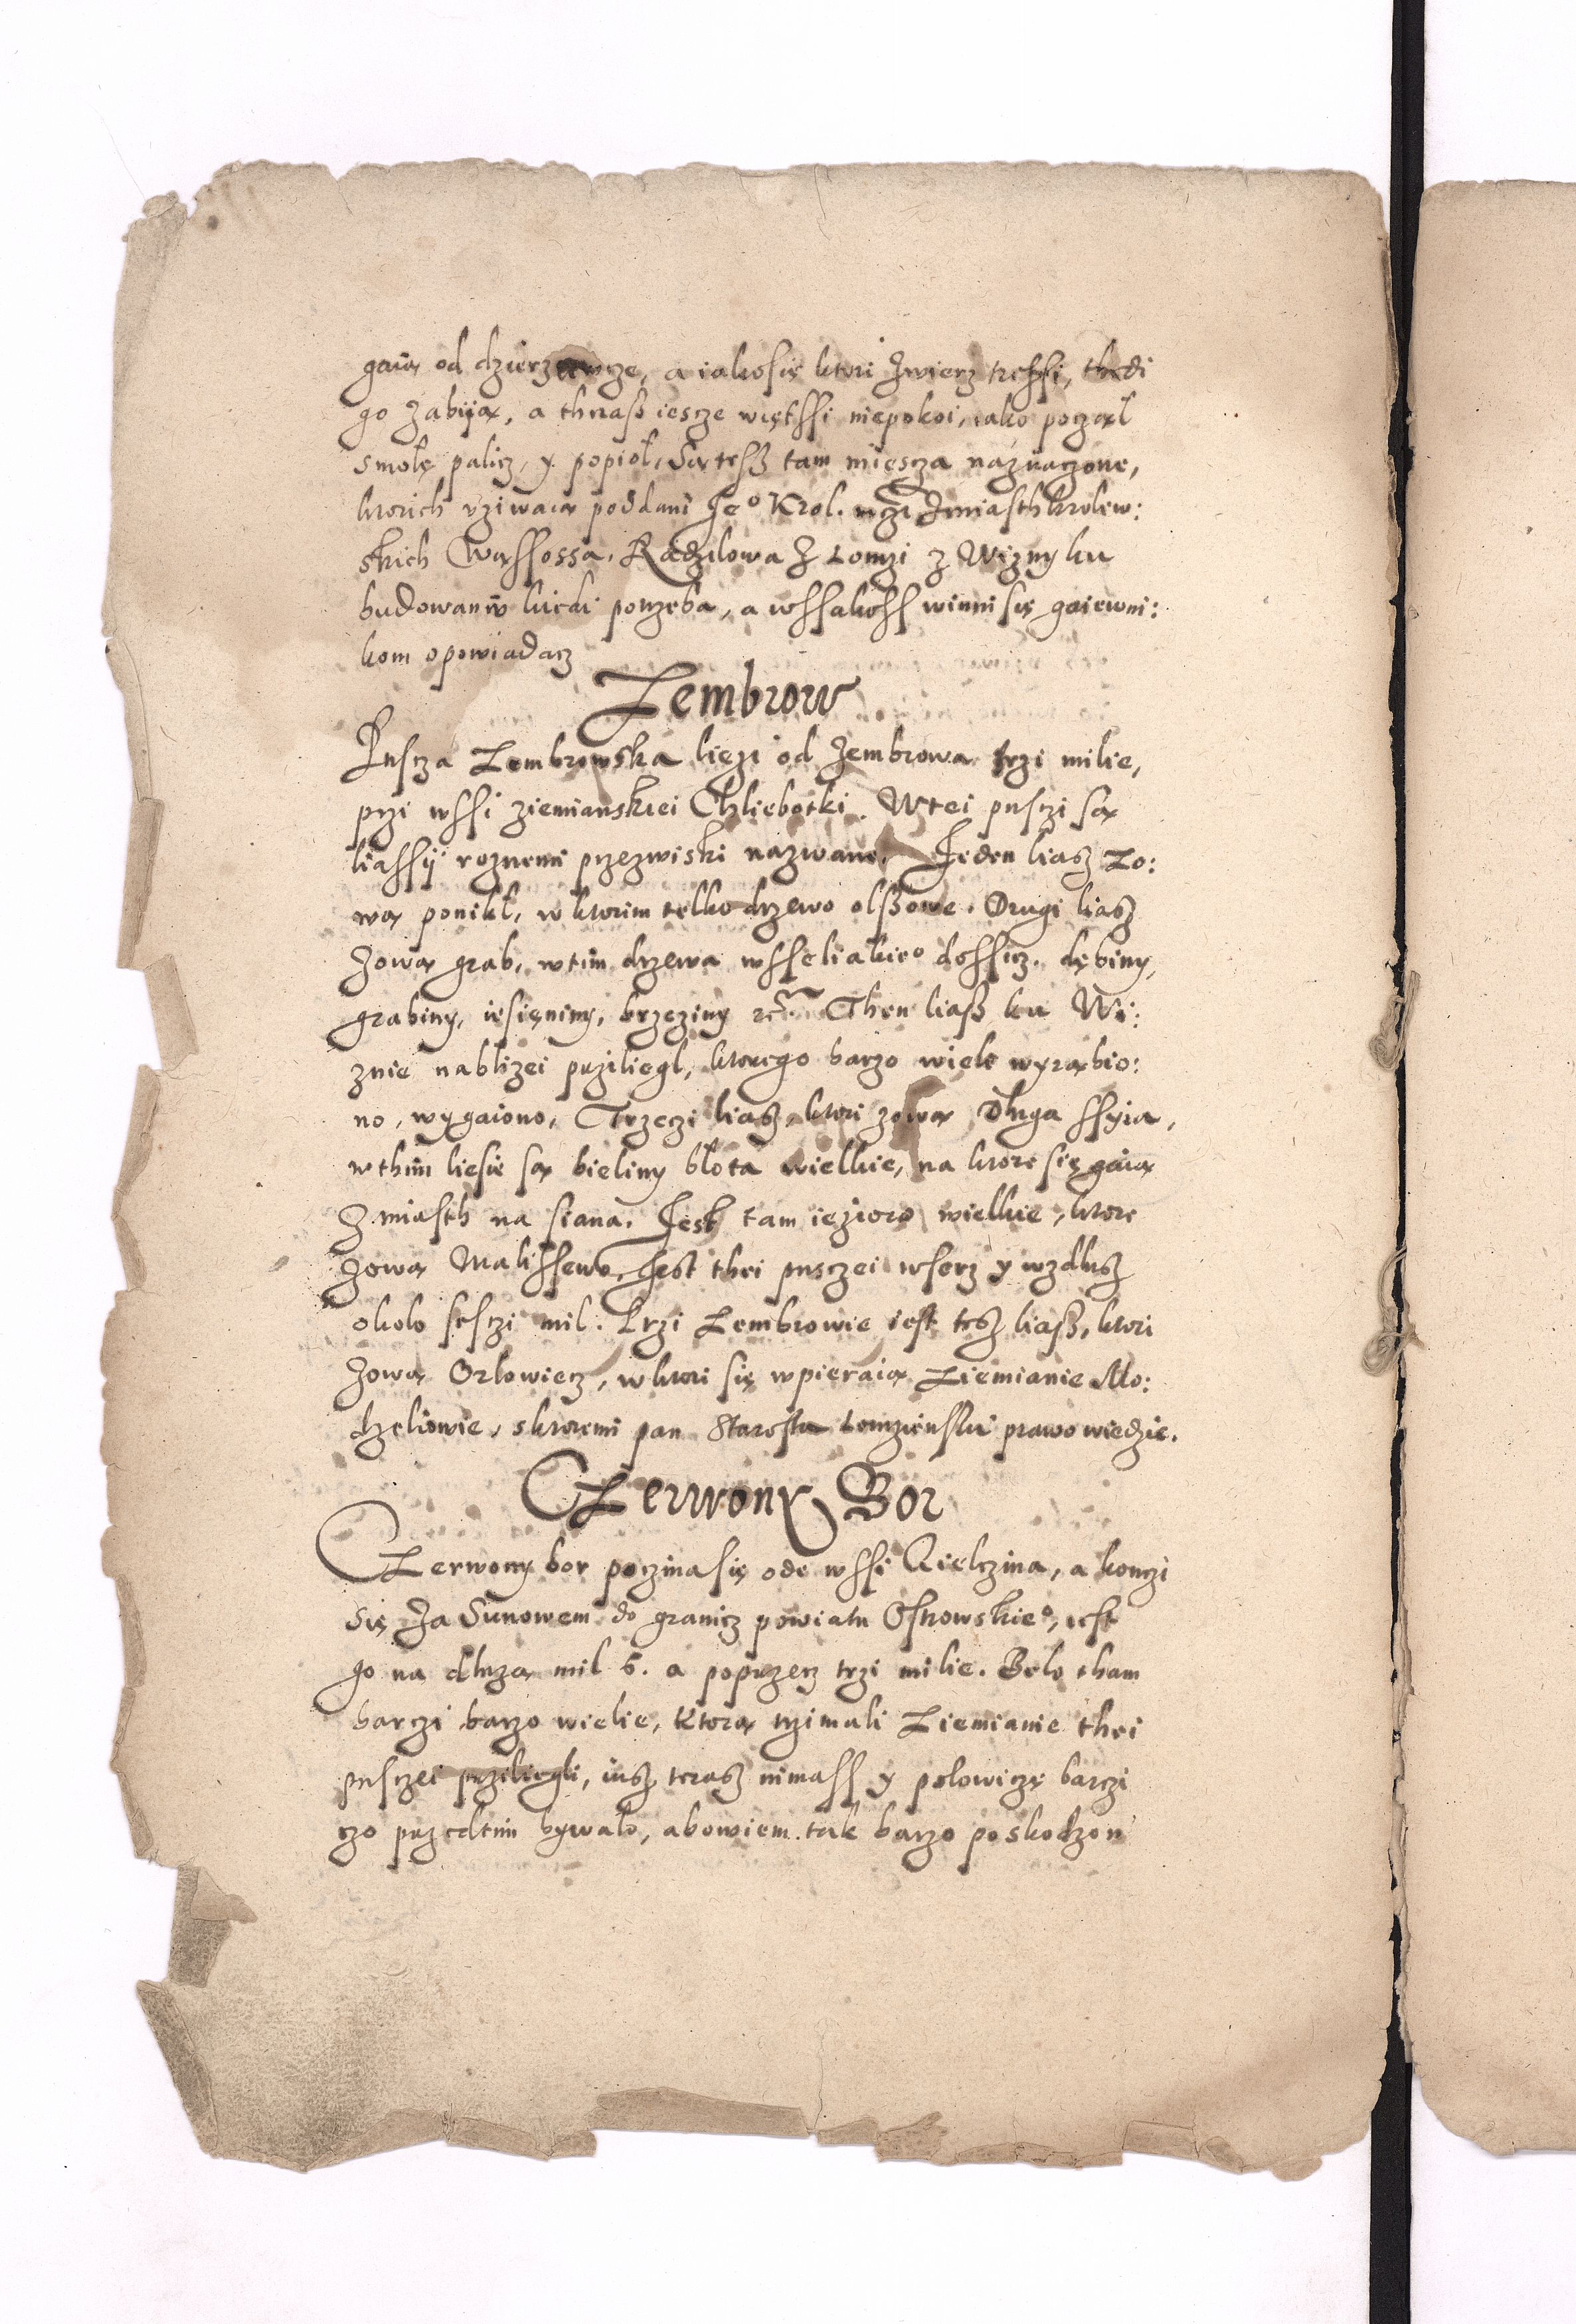 gaią od dzierzawcze, a iakosię ktori Zwierz treffi, thedi
go Zabiją, a theraß iescze więtssi niepokoi, iako począl
smolę palicz, y popiol, Są tesz tam miescza naznaczone,
ktorich vziwaią poddani Jeº Krol. mczi Zmiasth krolew:
skich Wąssossa, Radzilowa Z Lomzi z Wizny ku
budowaniu kiedi potrzeba, a wssakoss winni się gaiewni:
kom opowiadacz
Zembrow
Puscza Zembrowska liezi od Zembrowa trzi milie,
przi wssi ziemianskiei Chliebotki. Wtei pusczi są
liassy roznemi przezwiski nazwane. Jeden liasz Zo:
wą ponikl, w ktorim telko drzewo olßowe. Drugi liasz
Zową grab, wtim drzewa wsseliakieº dossicz. dębiny,
grabiny, iesięniny, brzeziny rc. Then liaß ku Wi:
znie nablizei prziliegl, ktorego barzo wiele wyrąbio:
no, wygaiono, Trzeczi liasz, ktori zową Dluga ssyia,
wthim liesie są bieliny blota wielkie, na ktore się gaią
Z miasth na siana. Jest tam iezioro wielkie, ktore
Zową Malissewo, Jest thei pusczei wserz y wzdlusz
okolo sesczi mil. Przi Zembrowie iest tesz liaß, ktori
Zową Orlowiecz, w ktori się wpieraią Ziemianie Mo:
dzeliowie, sktoremi pan Starosta Lomzienski prawo wiedzie.
CZerwony Bor
CZerwony bor poczina się ode wssi Kielczina, a konczi
się Za Sunowem do granicz powiatu Ostrowskieº, iest
go na dluzą mil 6. a poprzecz trzi milie. Belo tham
barczi barzo wielie, Ktorą trzimali Ziemianie thei
pusczei prziliegli, iusz terasz nimass y polowiczę barczi
czo przedtim bywalo, abowiem tak barzo poskodzon